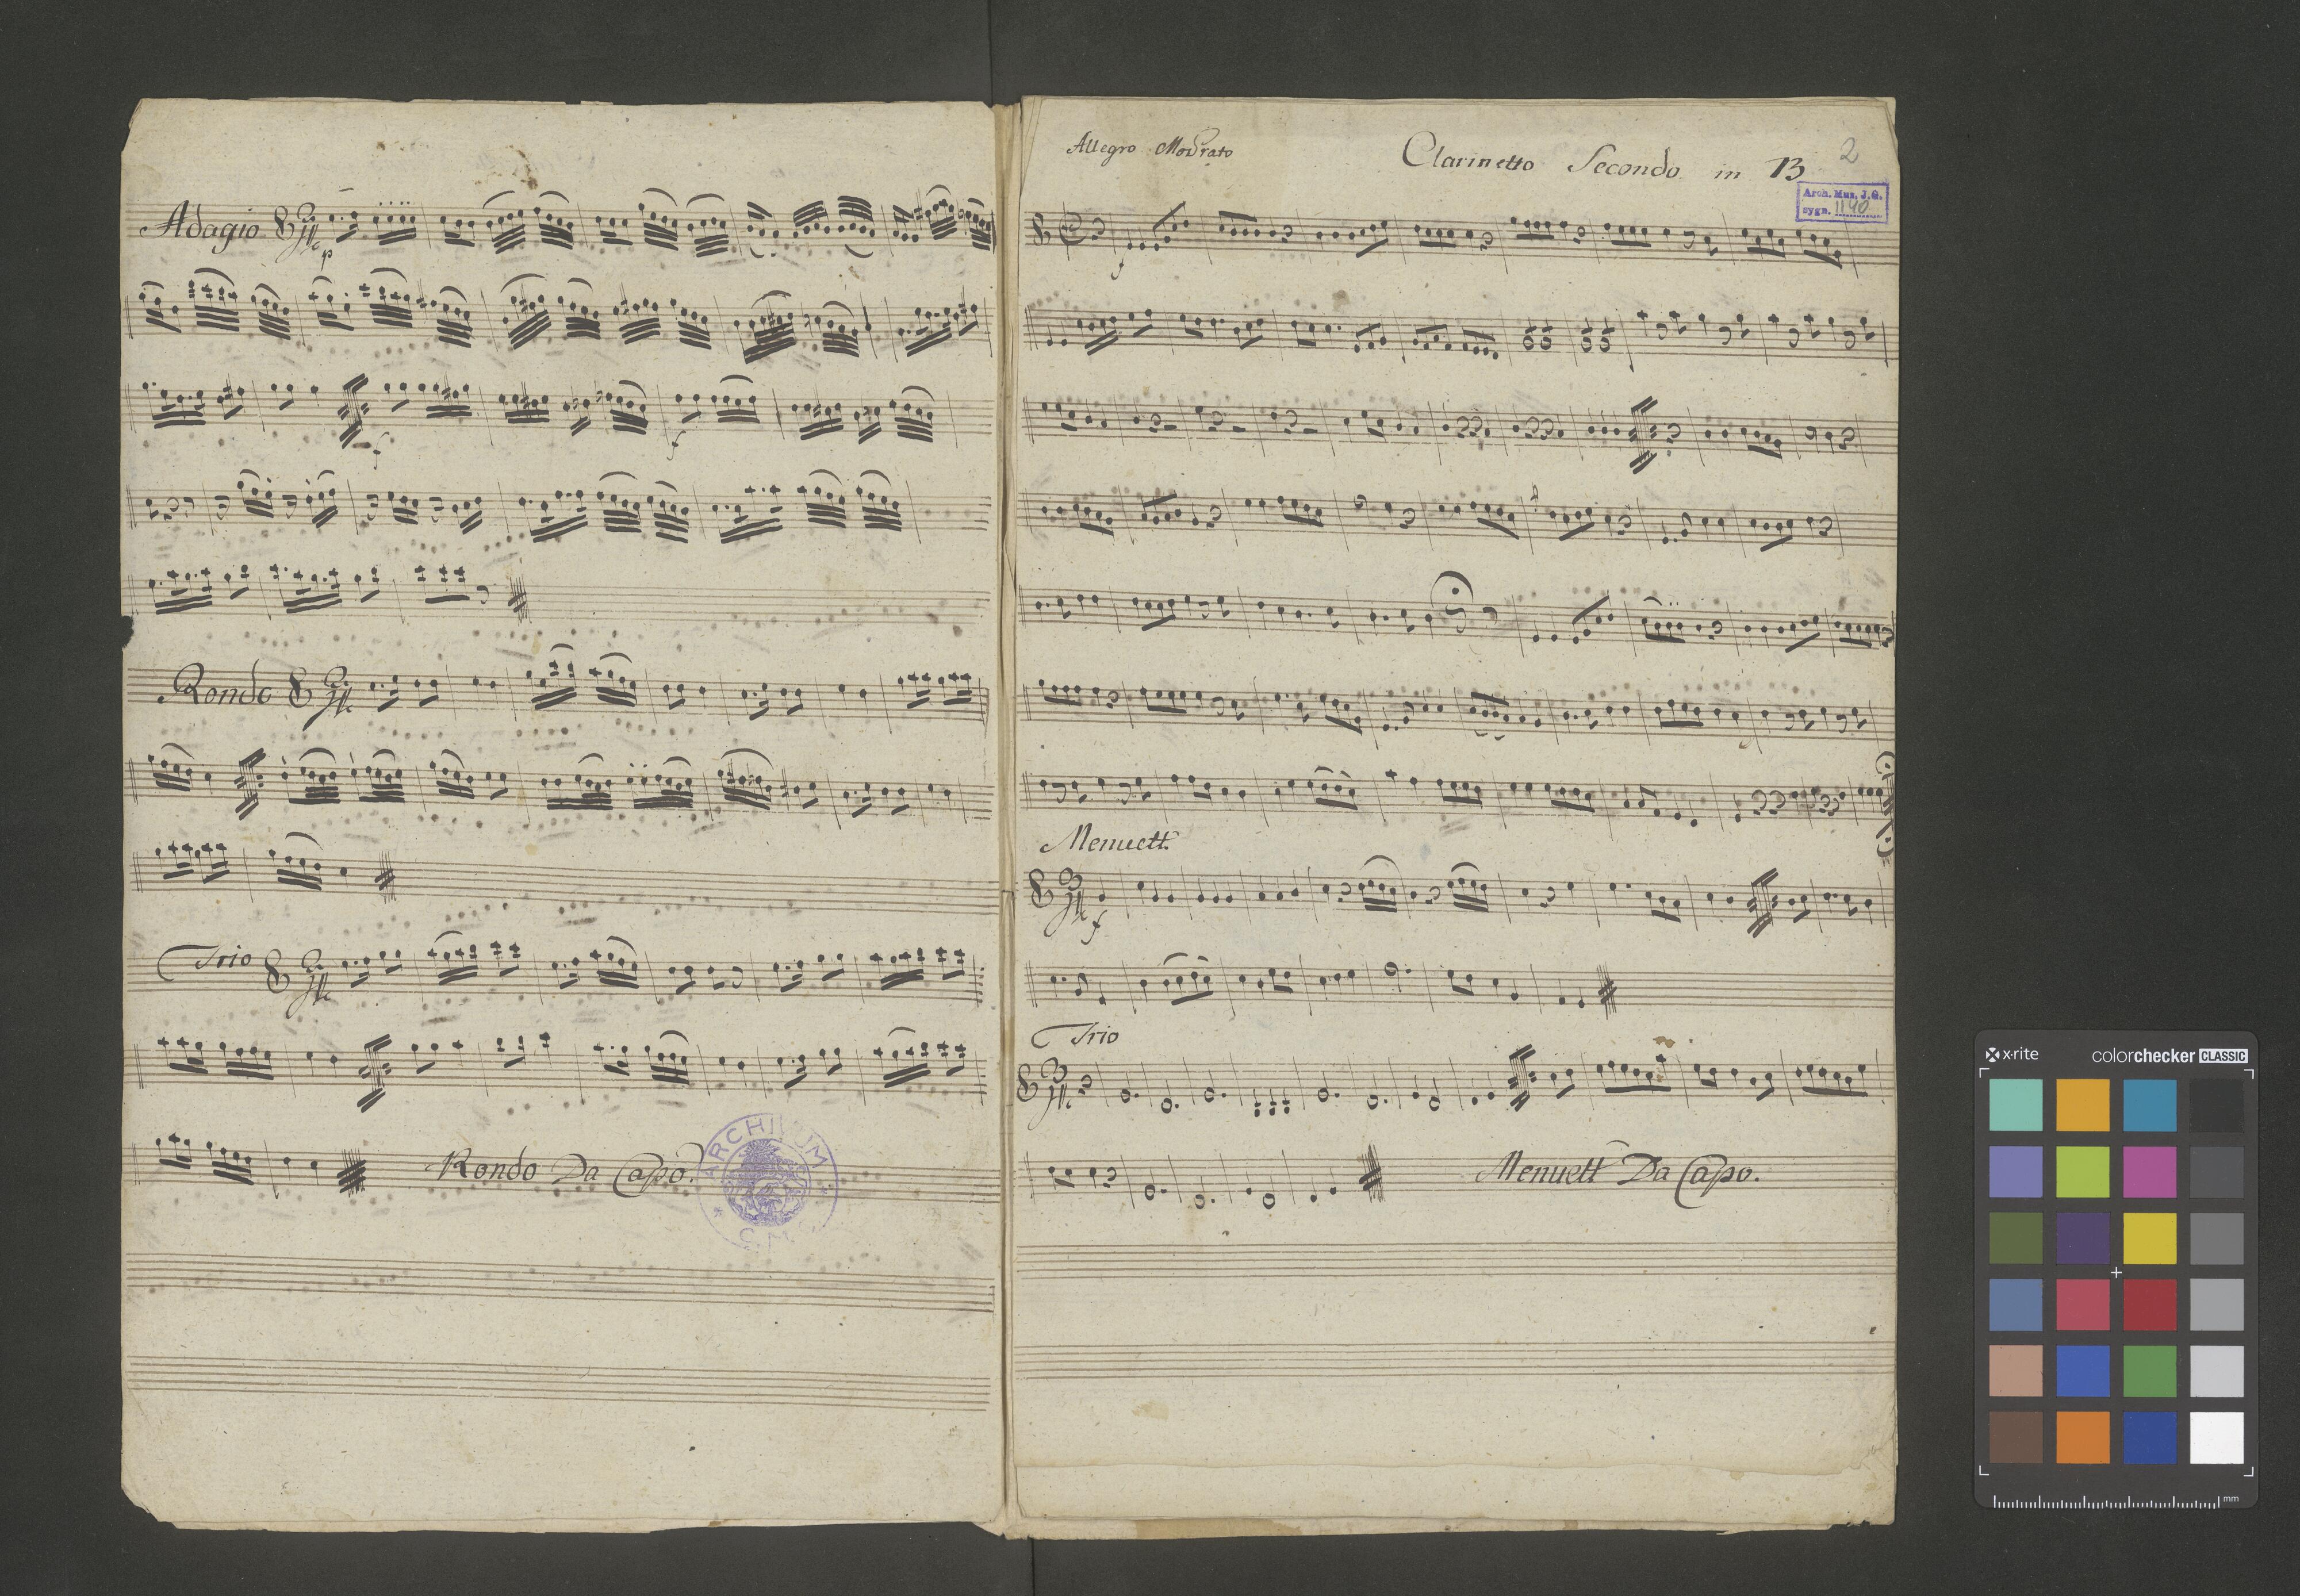 Adagio
p
f
f
Rondo
Trio
Rondo Da Capo.
ARCHIVUM
C.M.
Allegro Modrato
Clarinetto Secondo in B
2
Arch. Mus. J.G.
sygn. 1140
f
Menuett.
f
Trio
Menuett Da Capo.
x-rite
colorchecker CLASSIC
mm